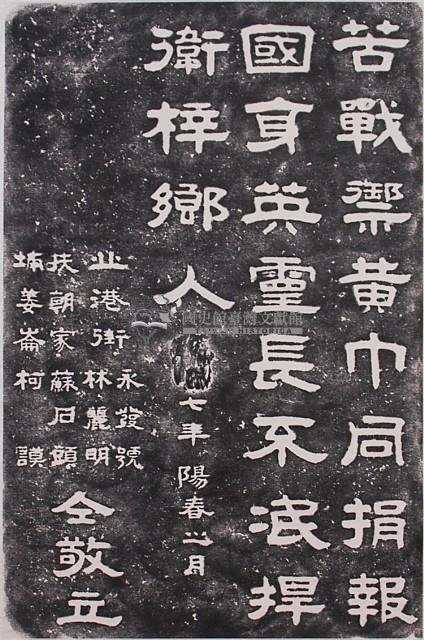 苦戰禦黃巾同捐報
國身英靈長不泯捍
衛梓鄉人
七年陽春之月
北港街
永發號
林麗明
扶朝家蘇石頭
埔姜崙柯謨
仝敬立
國史館臺灣文獻館
HISTORICA